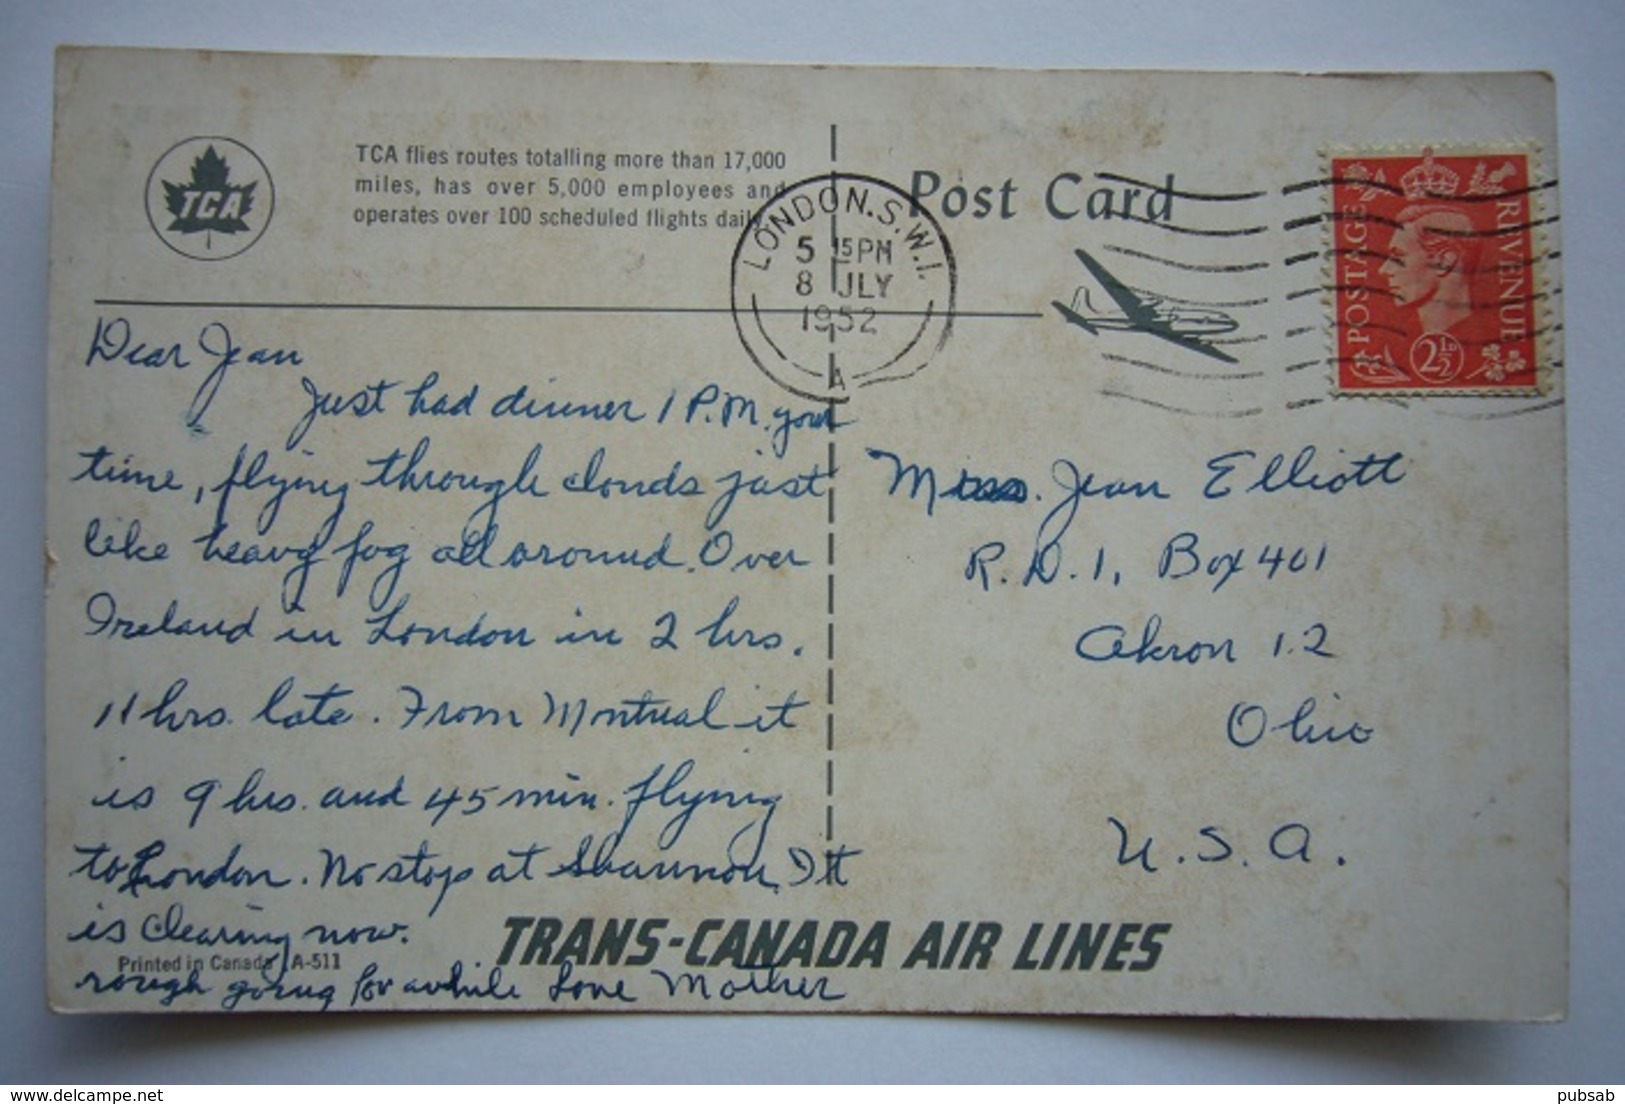 TCA
TCA flies routes totalling more than 17,000
miles, has over 5,000 employees and
operates over 100 scheduled flights daily.
Post Card
LONDON.S.W.1.
5 15 PM
8 JLY
1952
A
POSTAGE
REVENUE
2½D
Dear Jean
Just had dinner 1 P.M. your
time, flying through clouds just
like heavy fog all around. Over
Ireland in London in 2 hrs.
11 hrs. late. From Montreal it
is 9 hrs. and 45 min. flying
to London. No stop at Shannon. It
is clearing now.
rough going for awhile Love Mother
Miss. Jean Elliott
R.D.1, Box 401
Akron 12
Ohio
U.S.A.
TRANS-CANADA AIR LINES
Printed in Canada A-511
pubsab